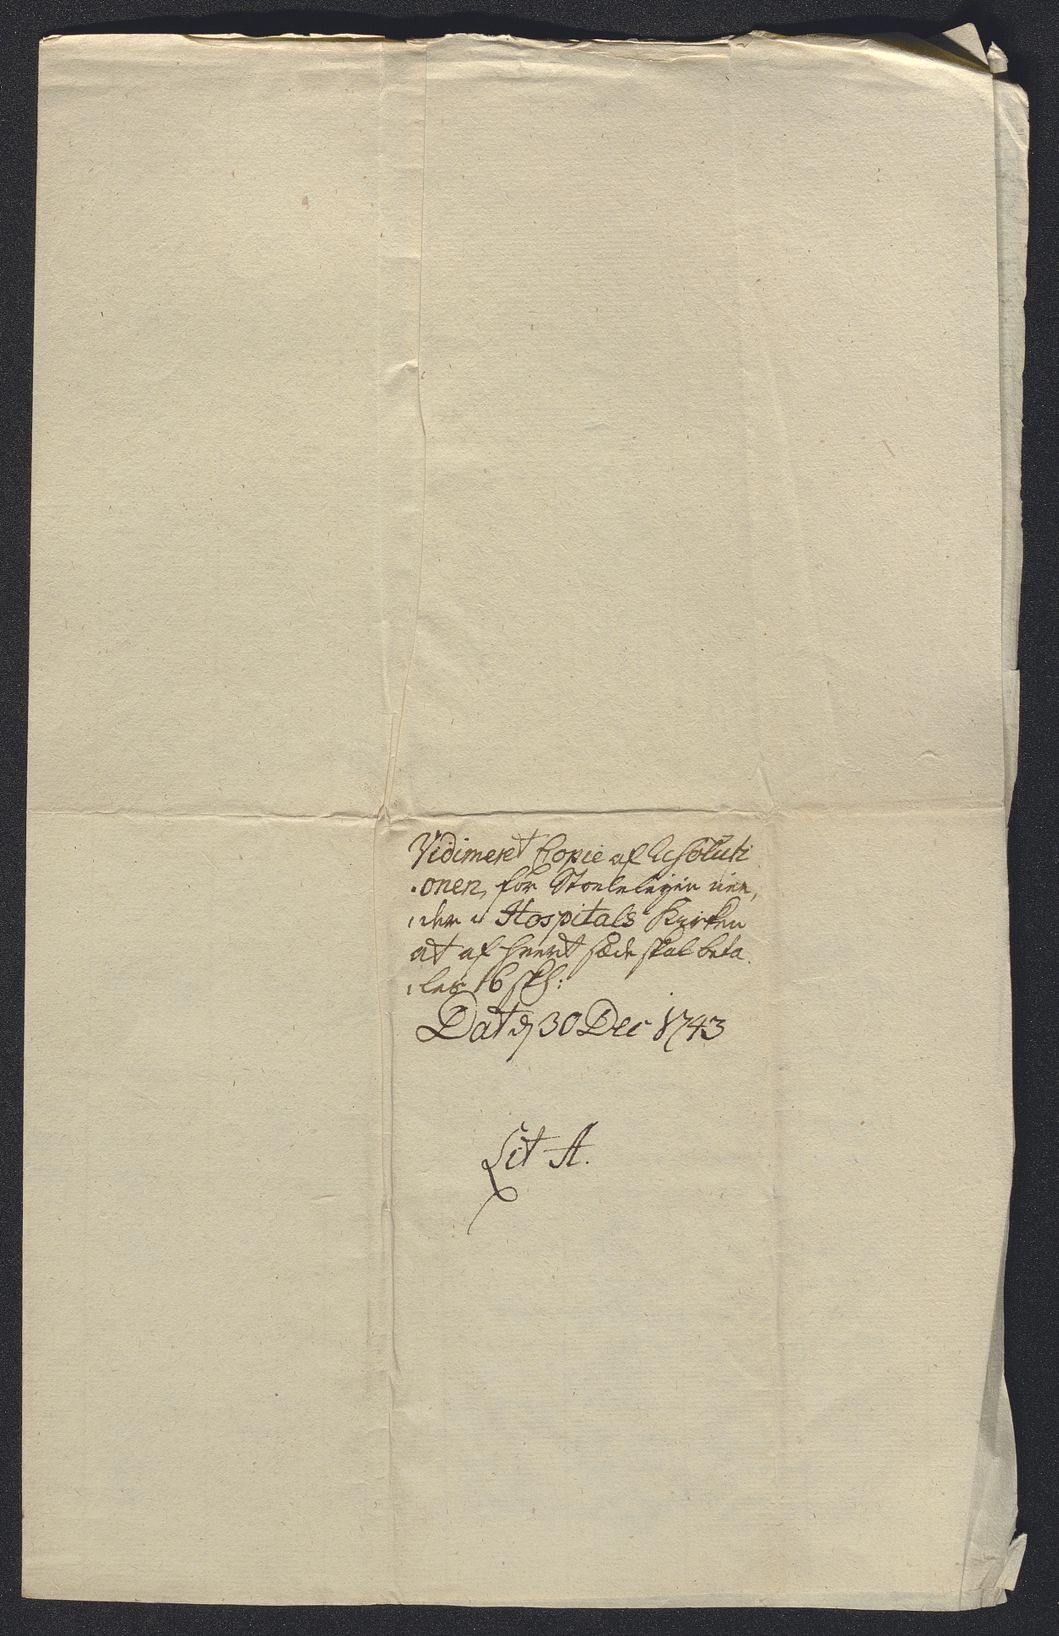 Vidimeret Copie af Resoluti
-onen, for Stoelelejen
i Hospitals Kirken
at af hvert sæde skal beta
-les 16 skl:
Dat d 30 Dec 1743
Lit A.